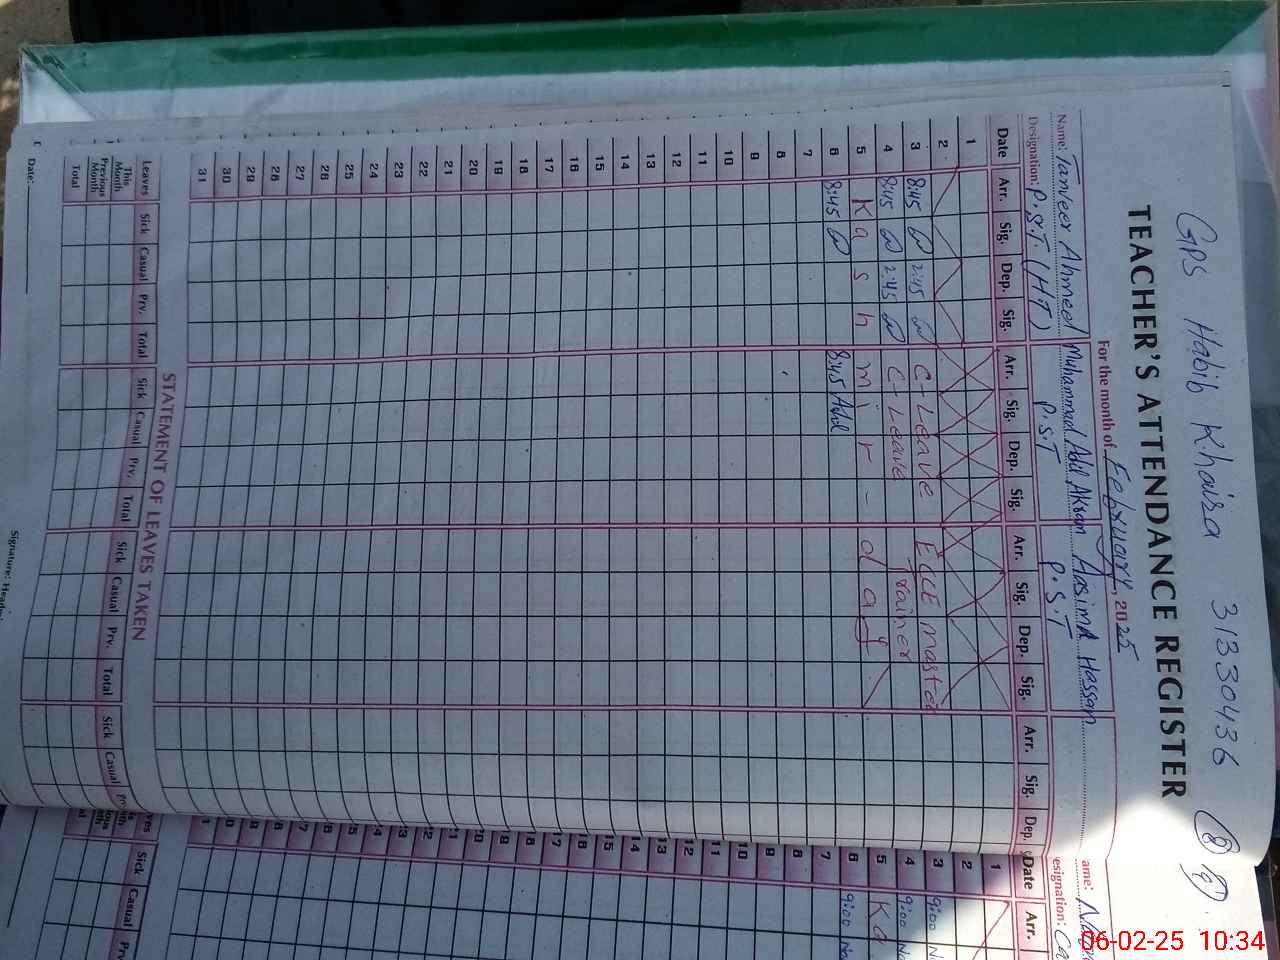 GPS Habib Khaira 31330436
TEACHER'S ATTENDANCE REGISTER
For the month of February, 2025
Name: Tanveer Ahmed Muhammad Adil Akram Aasima Hassan
Designation: P.S.T (HT) P.S.T P.S.T
Date Arr. Sig. Dep. Sig. Arr. Sig. Dep. Sig. Arr. Sig. Dep. Sig. Arr. Sig. Dep.
1
2
3 8:45 2:45 C-Leave ECCE Master
4 8:45 2:45 C-Leave Trainer
5 Kashmir-day
6 8:45 8:45 Adil
7
8
9
10
11
12
13
14
15
16
17
18
19
20
21
22
23
24
25
26
27
28
29
30
31
STATEMENT OF LEAVES TAKEN
Leaves Sick Casual Prv. Total Sick Casual Prv. Total Sick Casual Prv. Total Sick Casual
This Month
Previous Month
Total
Date:
Signature:
ame:
esignation:
Date Arr.
1
2
3 9:00
4 9:00
5
6 9:00
7
8
9
10
11
12
13
14
15
16
17
18
19
20
21
22
23
24
25
26
27
28
Sick Casual
06-02-25 10:34